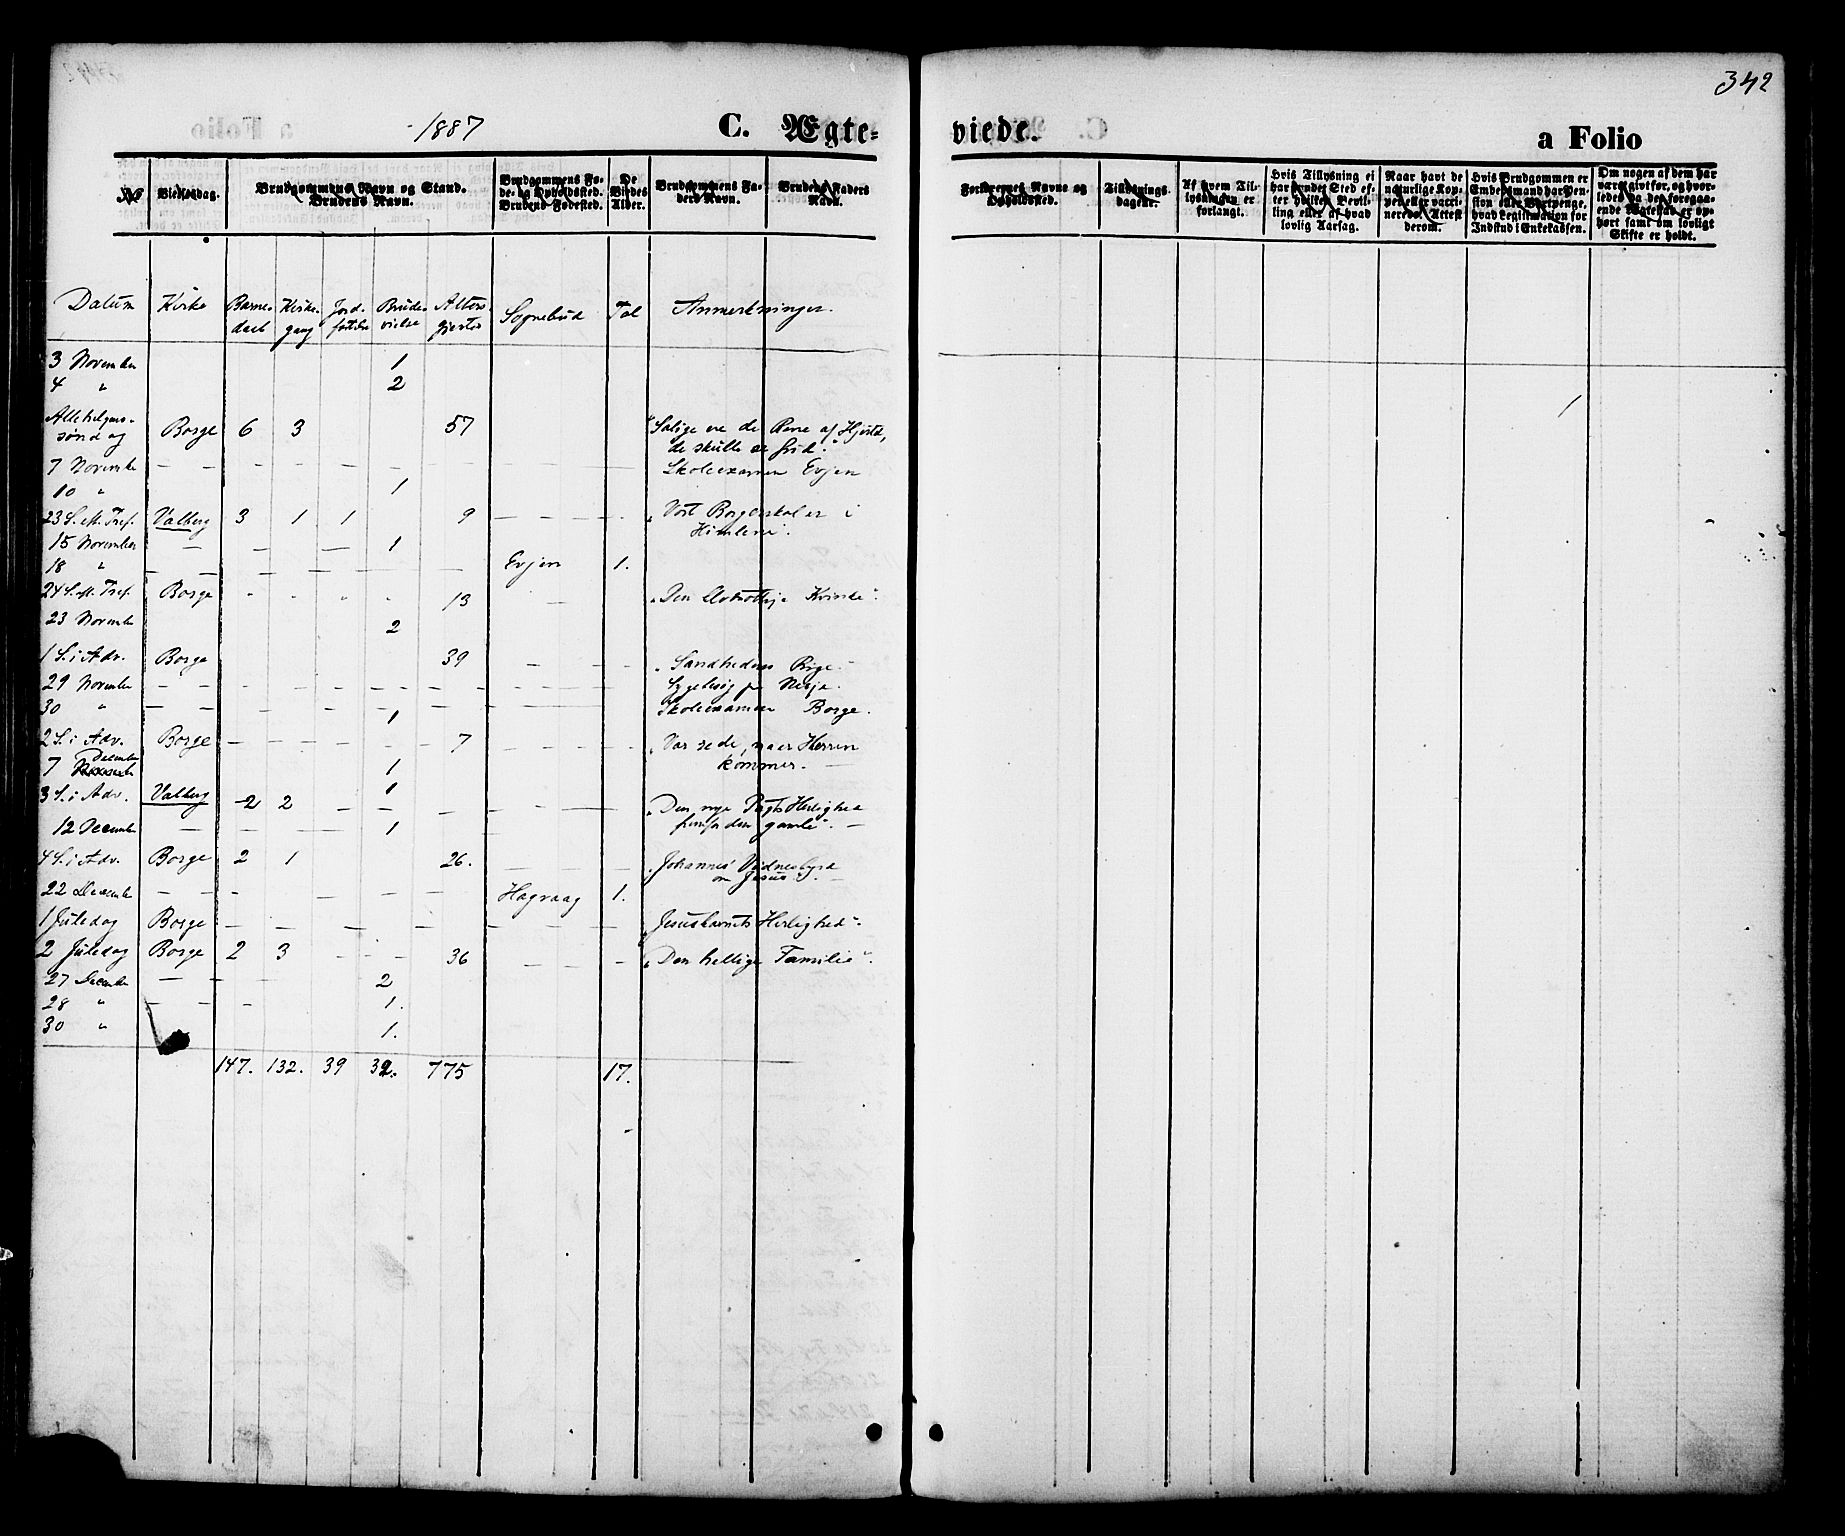 342
1887 C. Ægte- viede. a Folio
No
Vielsesdag.
Brudgommens Navn og Stand.
Brudens Navn.
Brudgommens Fø-
de- og Opholdssted.
Brudens Fødested.
De
Viedes
Alder.
Brudgommens Fa-
ders Navn.
Brudens Faders
Navn.
Forlovernes Navne og
Opholdssted.
Tillysnings-
dagene.
Af hvem Til-
lysningen er
forlangt.
Hvis Tillysning ei
har fundet Sted ef-
ter hvilken Bevil-
ling eller af hvad
lovlig Aarsag.
Naar havt de
naturlige Kop-
per eller vacci-
nerede. Attest
derom.
Hvis Brudgommen er
Embedsmand har Pen-
sion eller Vartpenge,
hvad Legitimation for
Indskud i Enkekassen.
Om nogen af dem har
været gift før, og hvor-
ledes da det foregaa-
ende Ægteskab er op-
hørt samt om lovligt
Skifte er holdt.
Datum Kirke Barne- Kirke- Jord- Brude- Alters- Sognebud Tal Anmerkninger.
daab gang fæstelse vielse gjester
3 November 1
4 " 2
Allehelgens-
søndag Borge 6 3 57 "Salige ere de Rene af Hjertet,
de skulle se Gud".
7 November Skoleexamen Evjen
10 " 1
23 S. e. Tref. Valberg 3 1 1 9 "Vort Borgerskab er i
Himlene".
15 November 1
18 " Evjen 1.
24 S. e. Tref. Borge 13 "Den Kvinde".
23 November 2
1 S. i Adv. Borge 39 "Sandhedens Rige."
29 November Sygebesøg på Nesje.
30 " 1 Skoleexamen Borge.
2 S. i Adv. Borge 7 "Vær rede, naar Herren
kommer.
7 December 1
3 S. i Adv. Valberg 2 2 1 "Den nye Pagts Herlighed
fremfor den gamle".
12 December 1
4 S. i Adv. Borge 2 1 26. "Johannes' Vidnesbyrd
om Jesus".
22 December Hagvaag 1.
1 Juledag Borge "Jesusbarnets Herlighed".
2 Juledag Borge 2 3 36 "Den hellige Familie".
27 December 2
28 " 1.
30 " 1.
147. 132. 39 32. 775 17.